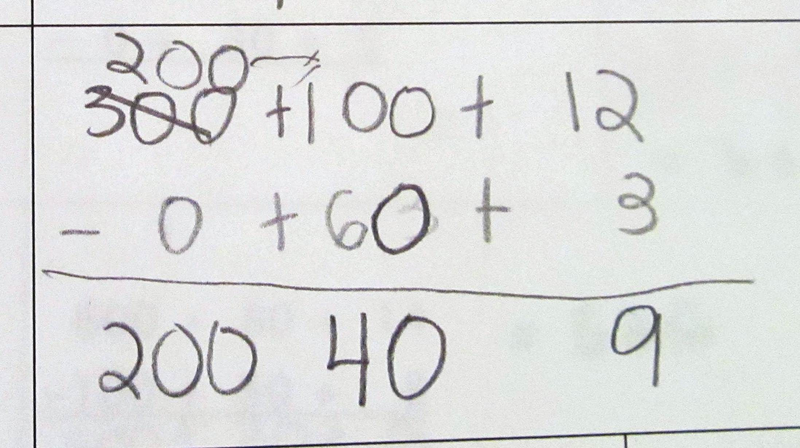 200 →
300 + 100 + 12
- 0 + 60 + 3
200 40 9